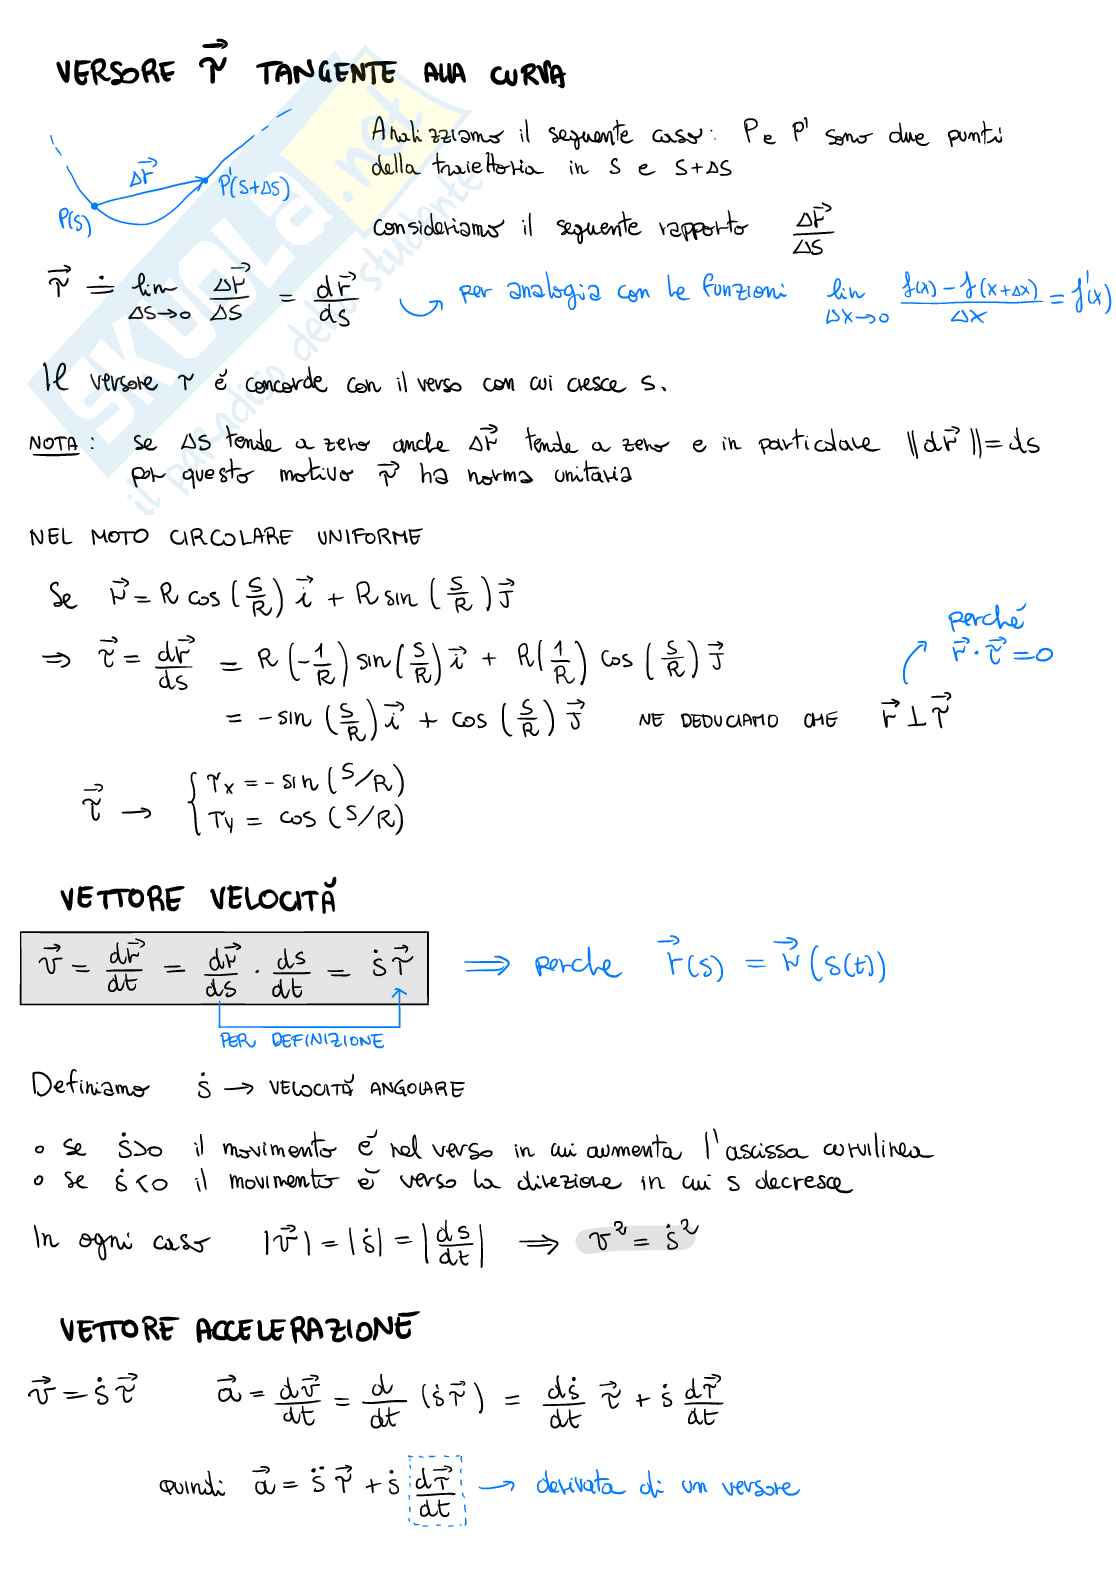 VERSORE τ⃗ TANGENTE ALLA CURVA
Analizziamo il seguente caso: P e P' sono due punti
della traiettoria in s e s+Δs
Δr⃗
P(s)
P'(s+Δs)
consideriamo il seguente rapporto Δr⃗/Δs
τ⃗ ≐ lim Δs→0 Δr⃗/Δs = dr⃗/ds
per analogia con le funzioni lim Δx→0 f(x) - f(x+Δx)/Δx = f'(x)
Il versore τ è concorde con il verso con cui cresce s.
NOTA: se Δs tende a zero anche Δr⃗ tende a zero e in particolare ||dr⃗|| = ds
per questo motivo τ⃗ ha norma unitaria
NEL MOTO CIRCOLARE UNIFORME
Se r⃗ = R cos (s/R) i⃗ + R sin (s/R) J⃗
⇒ τ⃗ = dr⃗/ds = R (-1/R) sin (s/R) i⃗ + R (1/R) cos (s/R) J⃗
perché
r⃗ · τ⃗ = 0
= - sin (s/R) i⃗ + cos (s/R) J⃗ NE DEDUCIAMO CHE r⃗ ⊥ τ⃗
τ⃗ → { τx = - sin (s/R)
τy = cos (s/R)
VETTORE VELOCITÀ
v⃗ = dr⃗/dt = dr⃗/ds · ds/dt = ṡ τ⃗ ⇒ perche r⃗(s) = r⃗(s(t))
PER DEFINIZIONE
Definiamo ṡ → VELOCITÀ ANGOLARE
o se ṡ>0 il movimento è nel verso in cui aumenta l'ascissa curvilinea
o se ṡ<0 il movimento è verso la direzione in cui s decresce
In ogni caso |v⃗| = |ṡ| = |ds/dt| ⇒ v² = ṡ²
VETTORE ACCELERAZIONE
v⃗ = ṡ τ⃗ a⃗ = dv⃗/dt = d/dt (ṡ τ⃗) = dṡ/dt τ⃗ + ṡ dτ⃗/dt
quindi a⃗ = s̈ τ⃗ + ṡ dτ⃗/dt → derivata di un versore
SKUOLA.net
il paradiso dello studente